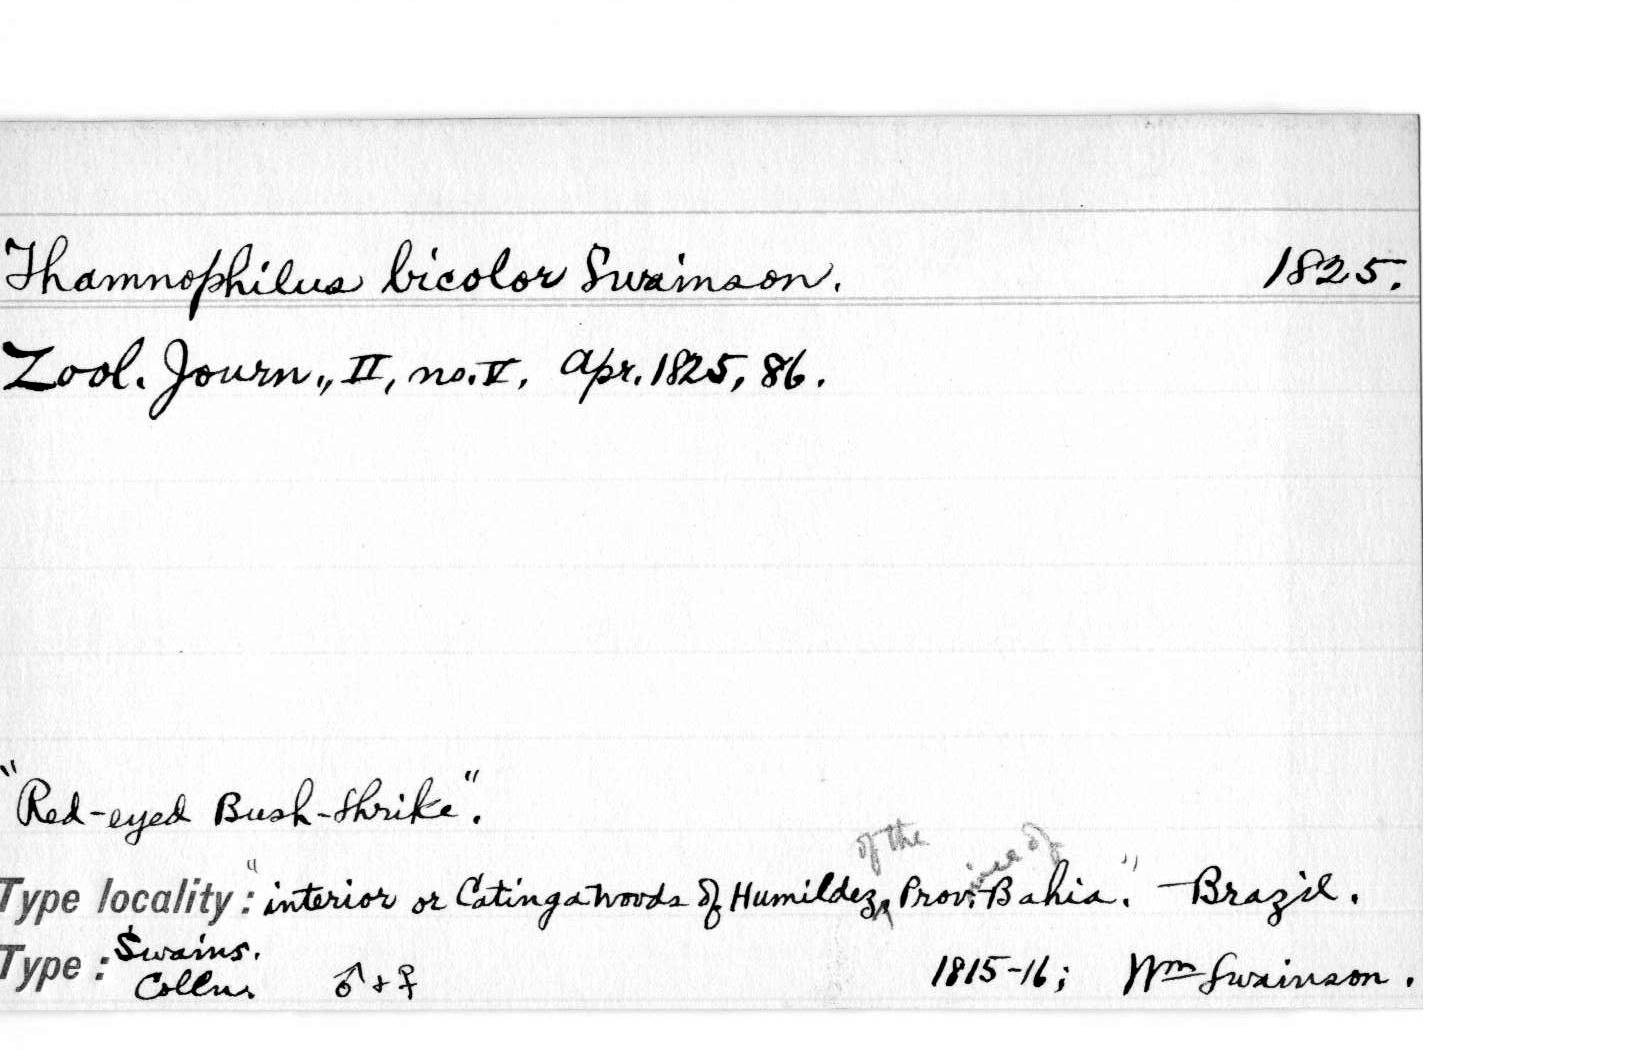 Thamnophilus bicolor Swainson. 1825.
Zool. Journ., II, no. V, Apr. 1825, 86.
"Red-eyed Bush-Shrike".
of the ince of
Type locality: "interior or Catinga woods of Humildez, Prov. Bahia." Brazil.
Type: Swains. Colln. ♂ + ♀ 1815-16; Wm Swainson.